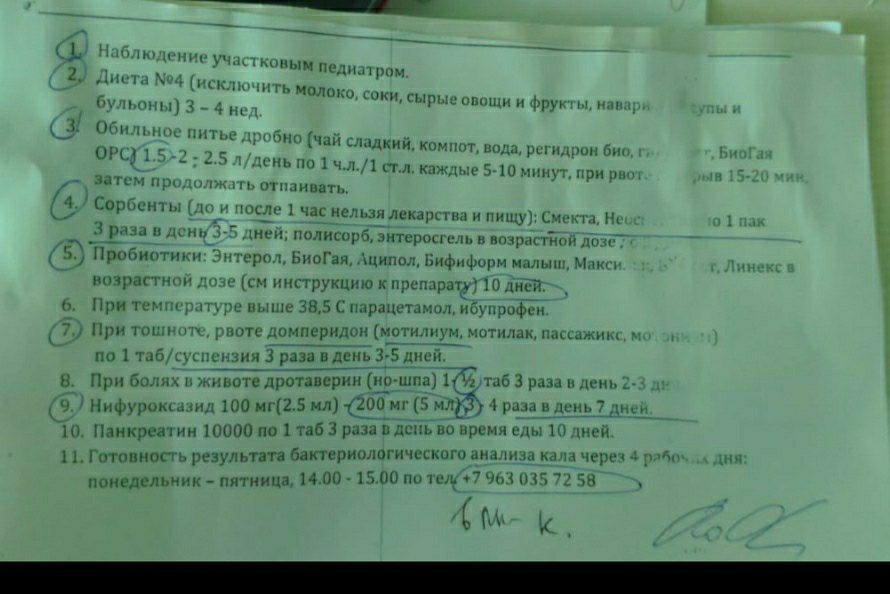 1. Наблюдение участковым педиатром.
2. Диета №4 (исключить молоко, соки, сырые овощи и фрукты, супы и
бульоны) 3 – 4 нед.
3. Обильное питье дробно (чай сладкий, компот, вода, регидрон био, БиоГая
ОРС) 1.5 -2 - 2.5 л/день по 1 ч.л./1 ст.л. каждые 5-10 минут, при 15-20 мин,
затем продолжать отпаивать.
4. Сорбенты (до и после 1 час нельзя лекарства и пищу): Смекта, 1 пак
3 раза в день 3-5 дней; полисорб, энтеросгель в возрастной дозе ;
5. Пробиотики: Энтерол, БиоГая, Аципол, Бифиформ малыш, Линекс в
возрастной дозе (см инструкцию к препарату) 10 дней.
6. При температуре выше 38,5 С парацетамол, ибупрофен.
7. При тошноте, рвоте домперидон (мотилиум, мотилак, пассажикс,
по 1 таб/суспензия 3 раза в день 3-5 дней.
8. При болях в животе дротаверин (но-шпа) 1- ½ таб 3 раза в день 2-3
9. Нифуроксазид 100 мг(2.5 мл) – 200 мг (5 мл) 3 - 4 раза в день 7 дней.
10. Панкреатин 10000 по 1 таб 3 раза в день во время еды 10 дней.
11. Готовность результата бактериологического анализа кала через 4 дня:
понедельник – пятница, 14.00 - 15.00 по тел. +7 963 035 72 58